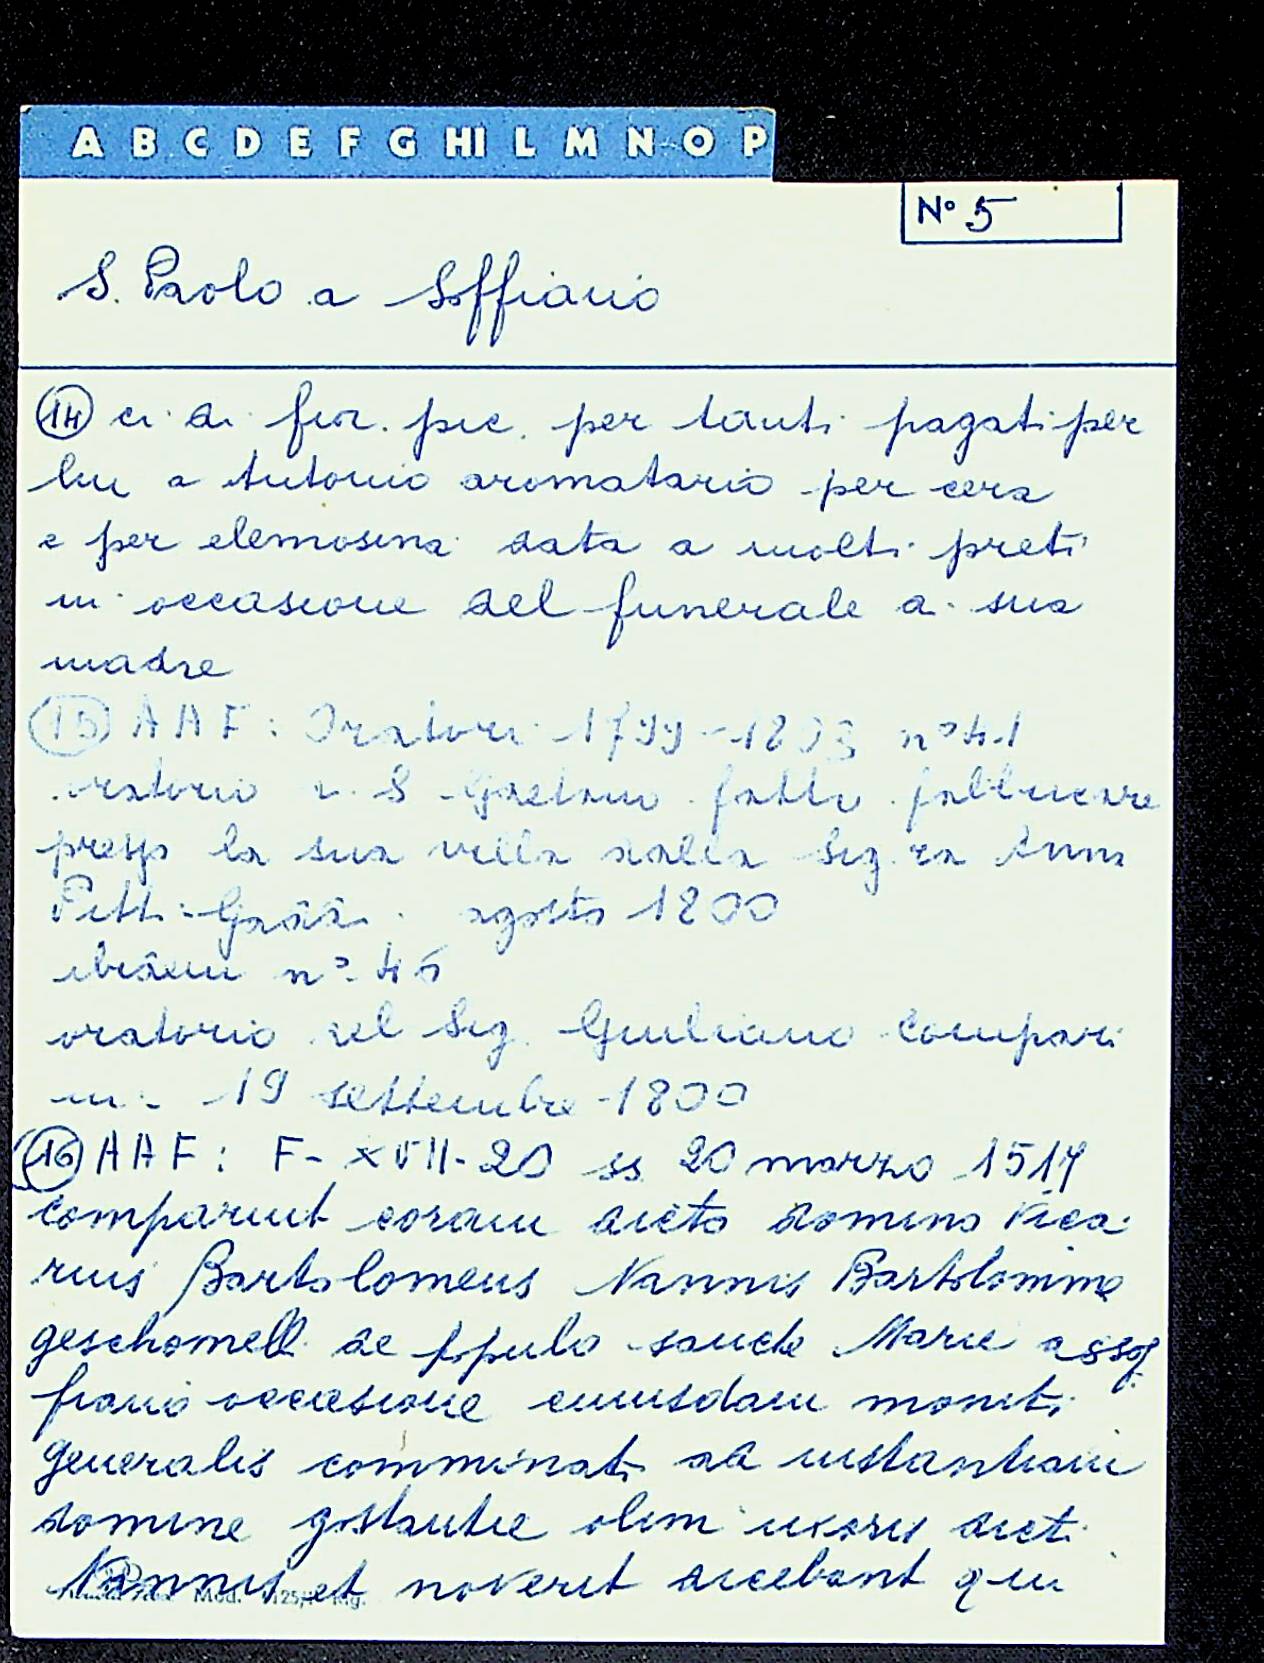 A B C D E F G HI L M N O P
Nº 5
S. Paolo a Soffiano
(14) ci di fior. pic. per tanti pagati per
lui a Antonio aromatario per cera
e per elemosina data a molti preti
in occasione del funerale a sua
madre
(15) AAF: Oratori 1799-1803 nº 41
oratorio di S Gaetano fatto fabbricare
presso la sua villa dalla Sig.ra Anna
Pitti-Gaddi agosto 1800
ibidem nº 46
oratorio del Sig. Giuliano Compari
ni - 19 settembre 1800
(16) AAF: F-XVII-20 ss 20 marzo 1517
comparuit coram dicto domino Vica
rius Bartolomeus Nannis Bartolomme
geschomell de ppulo sancte Marie assof
fiano occasione cuiusdam moniti
generalis comminati ad instantiam
domine gostantie olim uxoris dicti
Nannis et noverit dicebant qui
Mod.